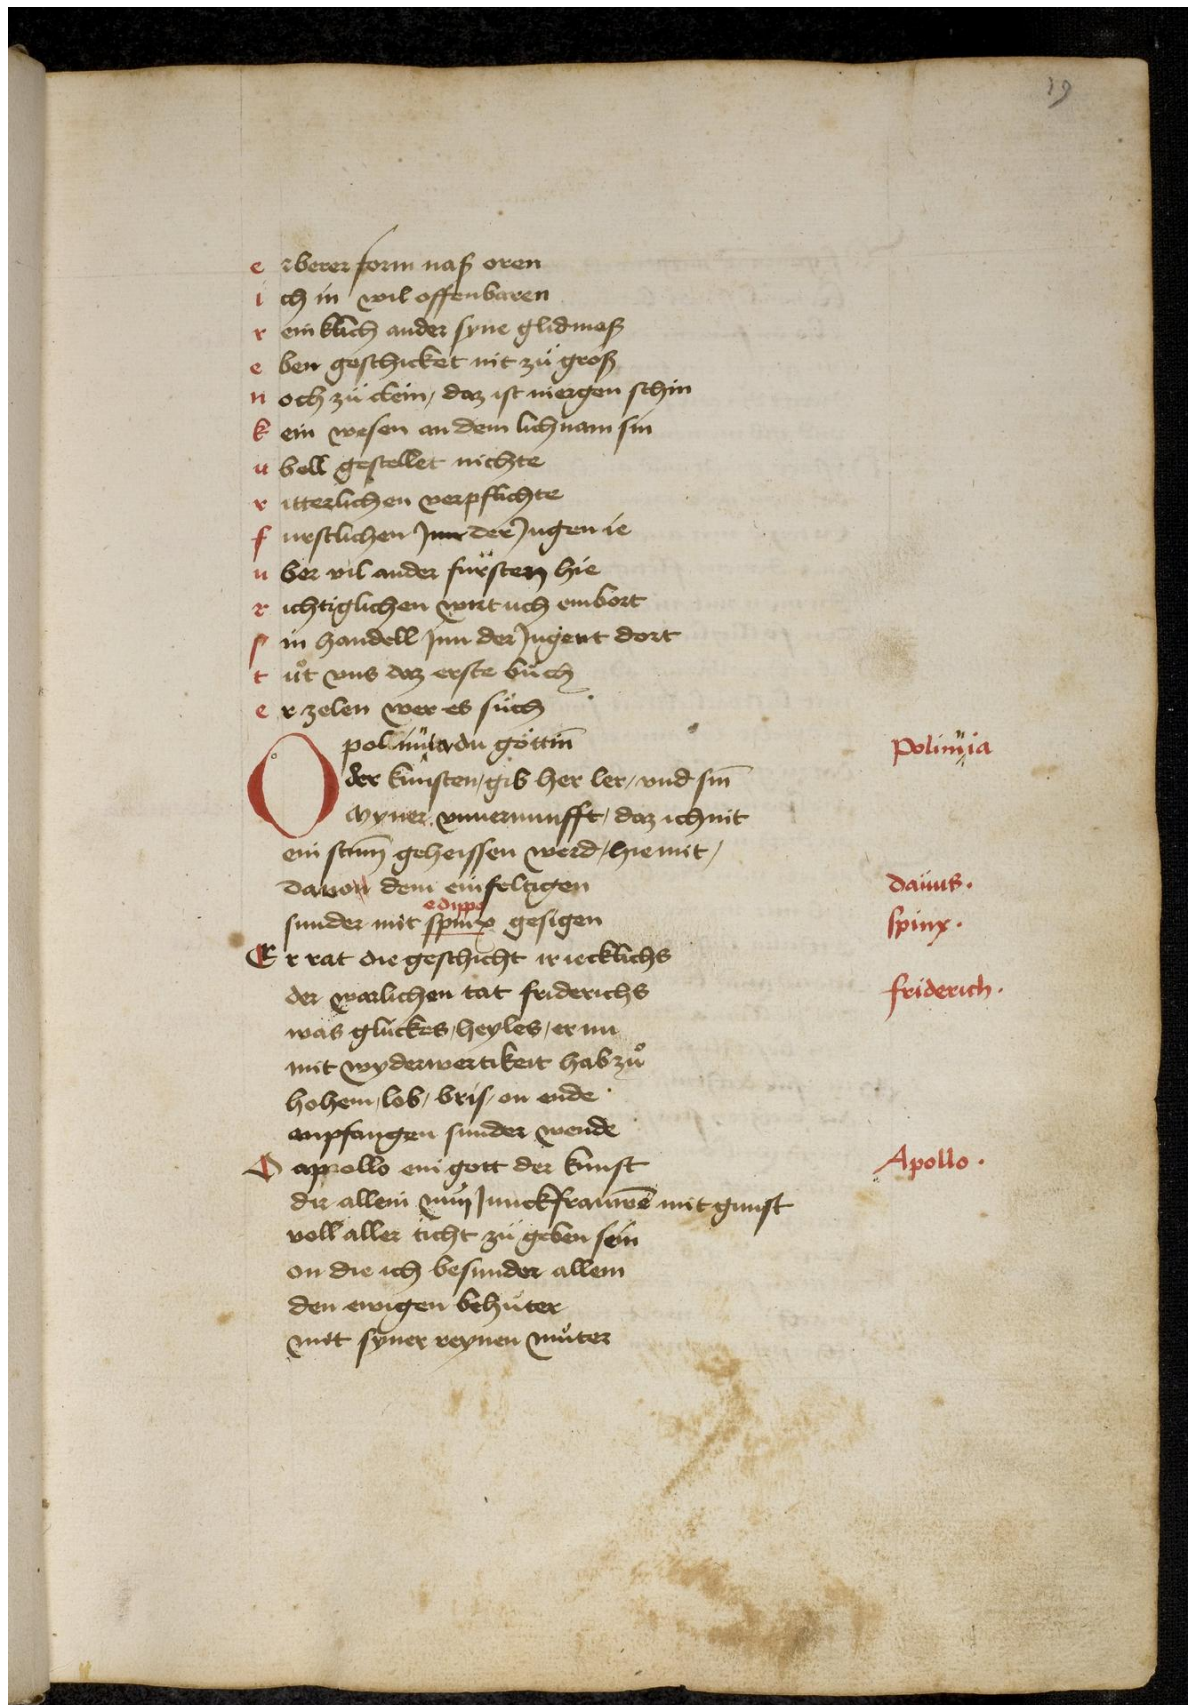 19
e rberer form nasß oren
i ch in wil offenbaren
r einklich ander syne glidmaß
e ben geschicket nit zü groß
n och zü clein / daz ist niergen schin
k ein wesen an dem lichnam sin
u bell gestellet nichte
r itterlichen verpflichte
f urstlichen der Jugen ie
u ber vil ander fürsten hie
r ichtiglichen wirt uch embort
s in handell Inn der Jugent dort
t uͦt vns daz erste buͦch
e r zelen wer es süch
O polimia du göttin̄
Polimia
der künsten / gib her ler / vnd sin̄
Myner vnuernunfft / daz ich nit
ein geheissen werd / hie mit /
dauon dem einfeltigen
dauus .
edippo
sunder mit spinx gesigen
spinx .
Er rat die geschicht ir iecklichs
der warlichen tat friderichs
friderich .
was glückes / heyles / er nu
mit wyderwertikeit hab zuͦ
hohem / lob / bris / on ende
enpfangen sunder wende
O appollo ein gott der kunst
Apollo .
dir allein Junckfrauwē mit gunst
voll aller ticht zü geben sein
on die ich besunder allein
den ewigen behüter
mit syner reynen müter